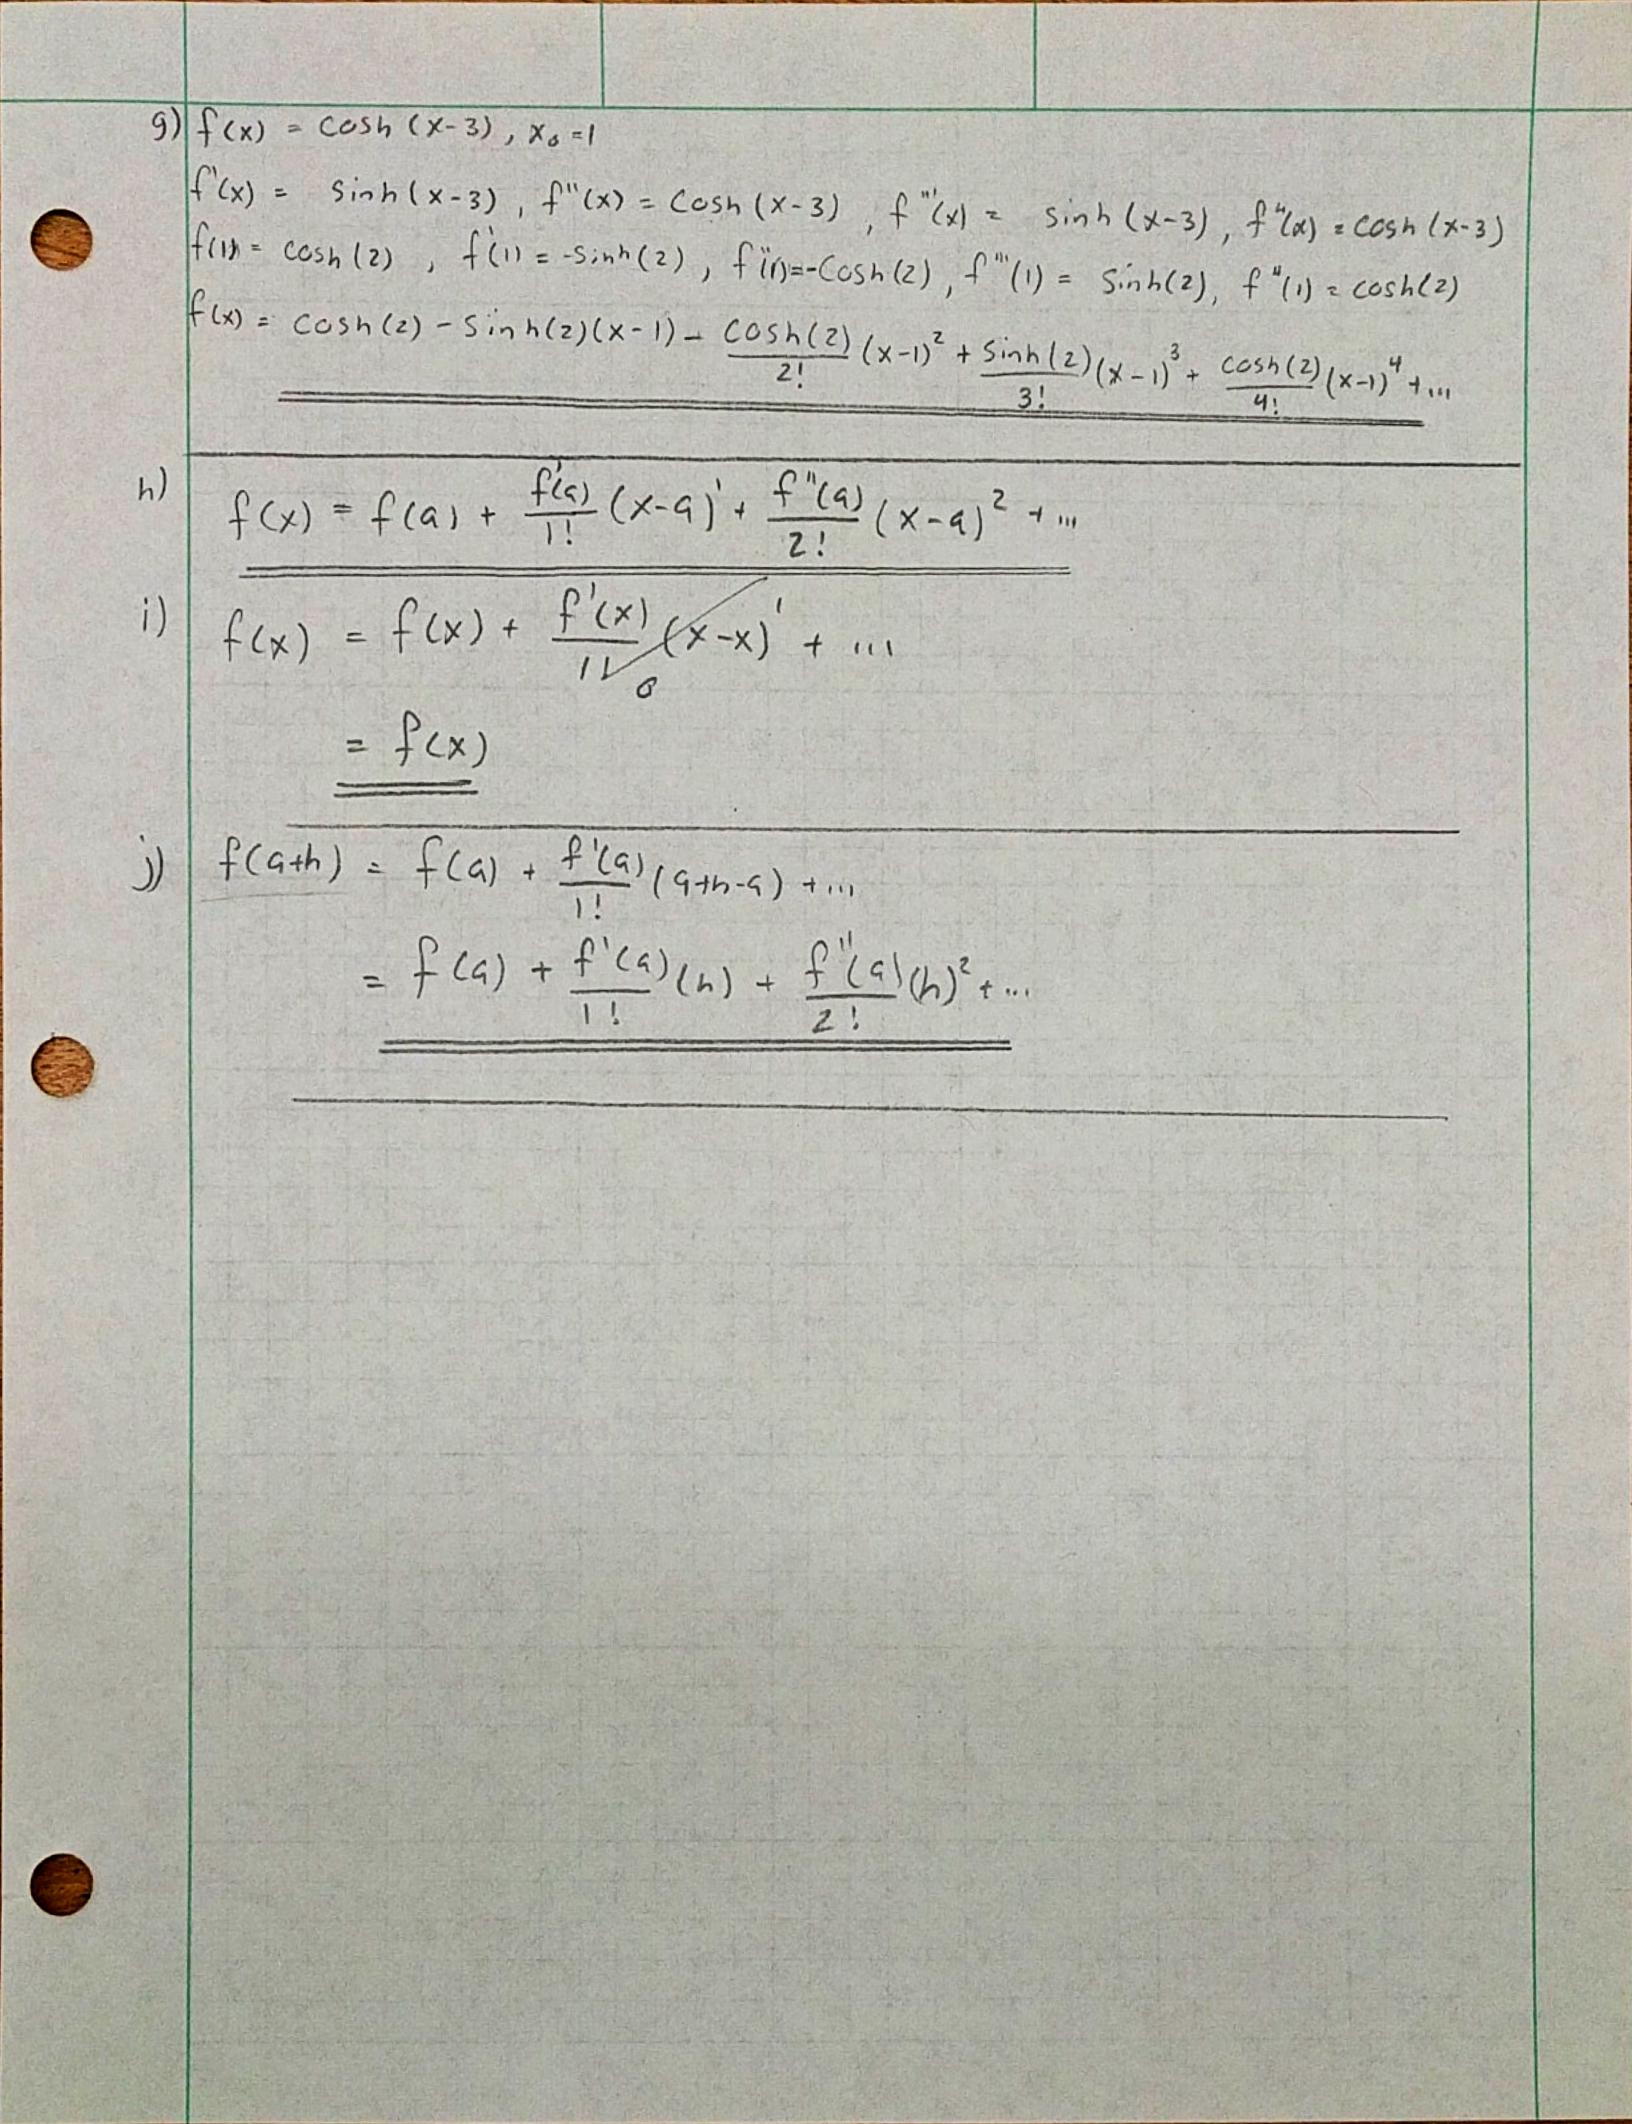 g) f(x) = cosh (x-3), x₀ = 1
f'(x) = sinh(x-3), f''(x) = cosh (x-3), f'''(x) = sinh (x-3), f⁴(x) = cosh (x-3)
f(1) = cosh (2), f'(1) = -sinh(2), f''(1) = -cosh(2), f'''(1) = sinh(2), f⁴(1) = cosh(2)
f(x) = cosh(2) - sinh(2)(x-1) - cosh(2)/2! (x-1)² + sinh(2)/3! (x-1)³ + cosh(2)/4! (x-1)⁴ + ...
h) f(x) = f(a) + f'(a)/1! (x-a)¹ + f''(a)/2! (x-a)² + ...
i) f(x) = f(x) + f'(x)/1! (x-x)¹ + ...
0
= f(x)
j) f(a+h) = f(a) + f'(a)/1! (a+h-a) + ...
= f(a) + f'(a)/1! (h) + f''(a)/2! (h)² + ...